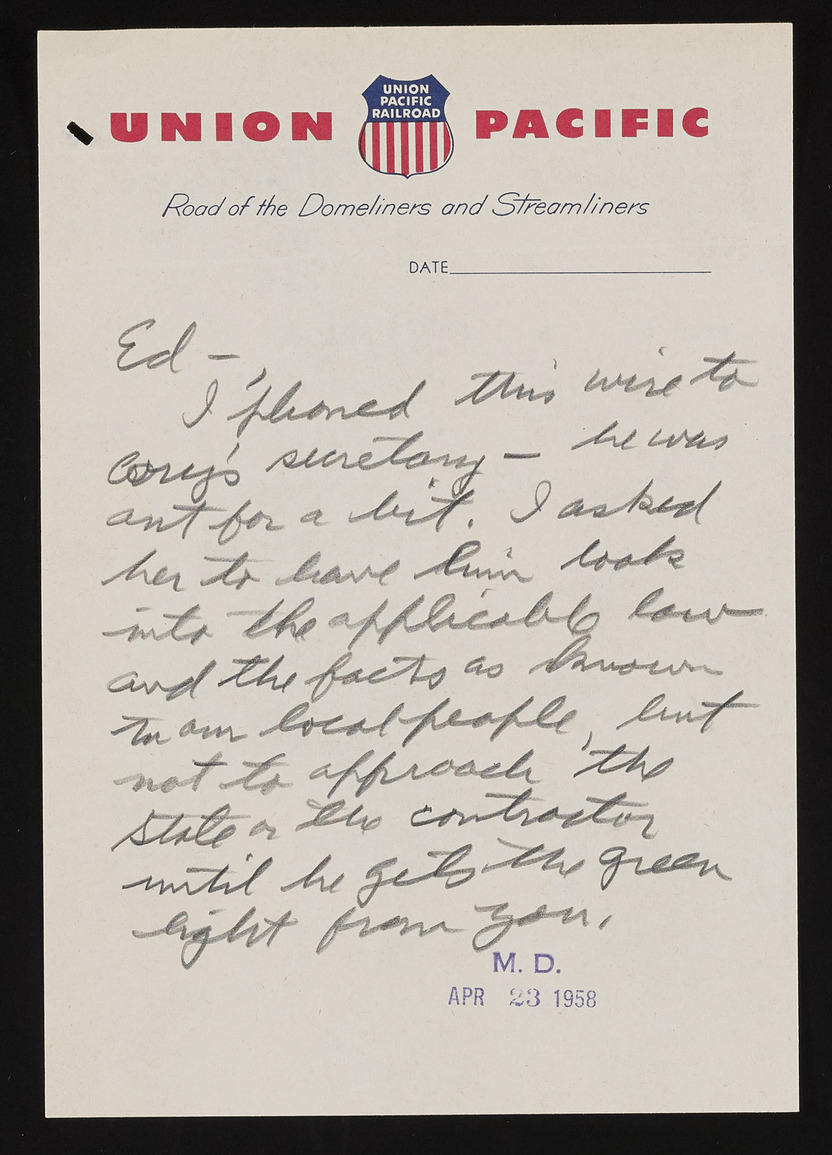 UNION
PACIFIC
RAILROAD
UNION PACIFIC
Road of the Domeliners and Streamliners
DATE
Ed –
I 'phoned this wire to
Cory's secretary – he was
out for a bit. I asked
her to have him look
into the applicable law
and the facts as known
to our local people, but
not to approach the
State or the contractor
until he gets the green
light from you.
M. D.
APR 23 1958